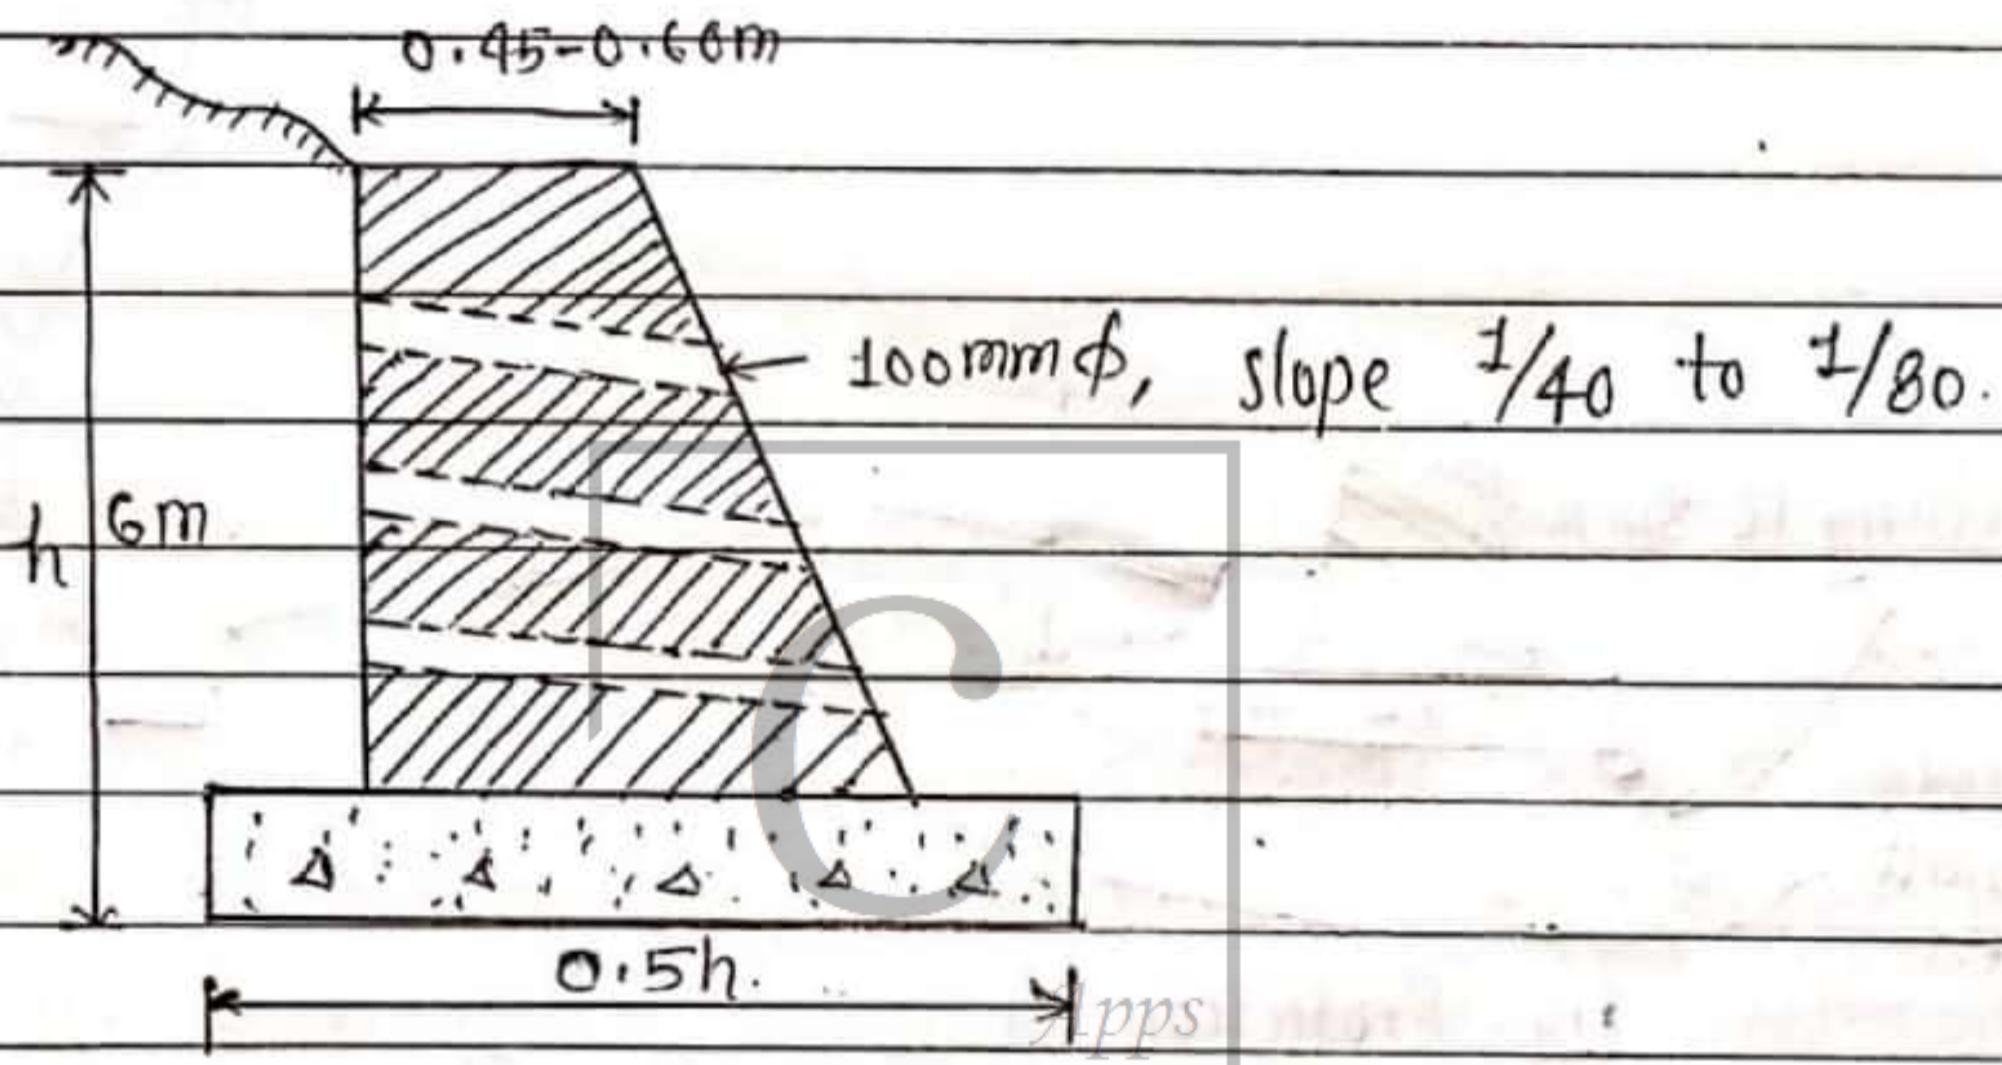 0.45-0.60m
100mm ϕ, slope 1/40 to 1/80.
6m
h
C
0.5h.
Apps